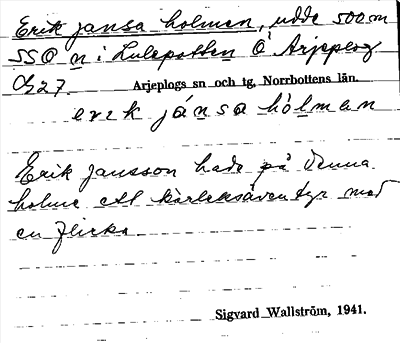 Erik jansa holmen, udde 500 m
SSO n i Luleputten Ö Arjeplog
Gh27. Arjeplogs sn och tg, Norrbottens län.
erik jánsa hòlmen
Erik Jansson hade på denna
holme ett kärleksäventyr med
en flicka
Sigvard Wallström, 1941.